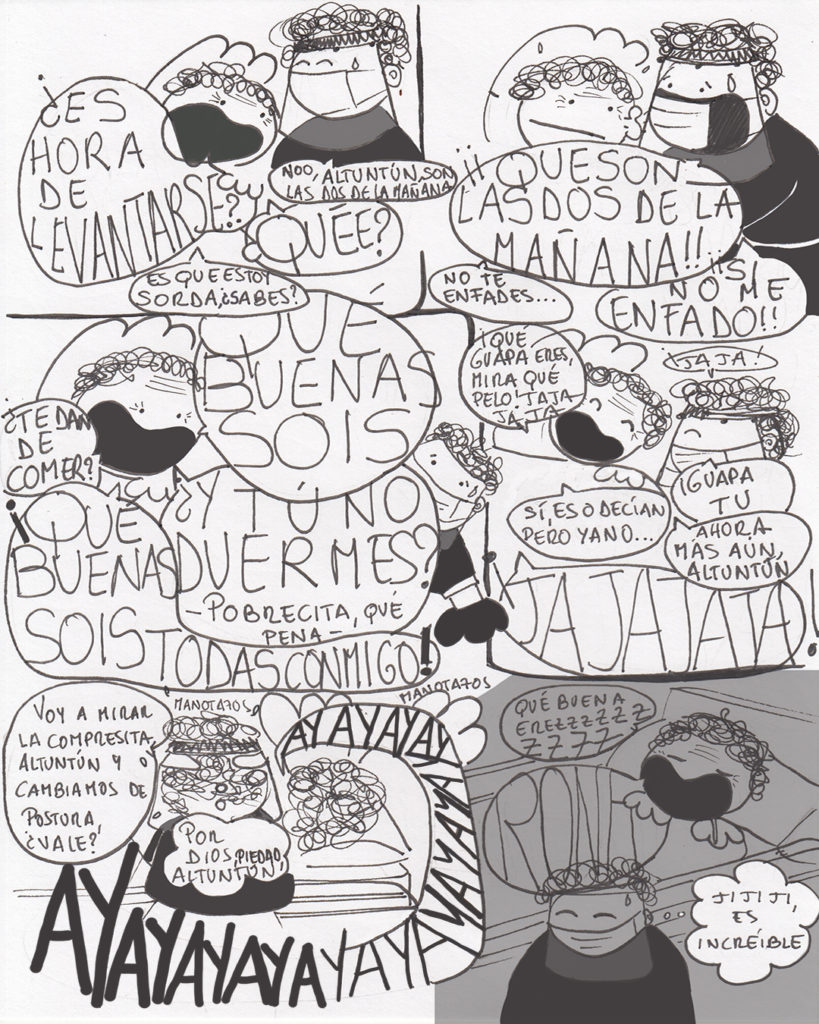 ¿ES
HORA
DE
LEVANTARSE?
NOO, ALTUNTÚN, SON
LAS DOS DE LA MAÑANA
¿QUÉE?
ES QUE ESTOY
SORDA, ¿SABES?
¡¡QUE SON
LAS DOS DE LA
MAÑANA!!
NO TE
ENFADES...
¡¡SI
NO ME
ENFADO!!
¿TE DAN
DE
COMER?
QUÉ
BUENAS
SOIS
¿Y TÚ NO
DUERMES?
-POBRECITA, QUÉ
PENA-
¡QUÉ
BUENAS
SOIS
TODAS CONMIGO!
¡QUÉ
GUAPA ERES,
MIRA QUÉ
PELO! JAJA
JA JA
JAJA!
¡GUAPA
TÚ
SÍ, ESO DECÍAN
PERO YA NO...
AHORA
MÁS AÚN,
ALTUNTÚN
¡JAJAJAJA!
VOY A MIRAR
LA COMPRESITA,
ALTUNTÚN Y
CAMBIAMOS DE
POSTURA
¿VALE?
MANOTAZOS
MANOTAZOS
POR
DIOS, PIEDAD,
ALTUNTÚN
AYAYAYAYAYAYAYAYA
AYAYAYAYAYAYAYAYA
QUÉ BUENA
EREZZZZZZ
ZZZZ
JIJIJI,
ES
INCREÍBLE